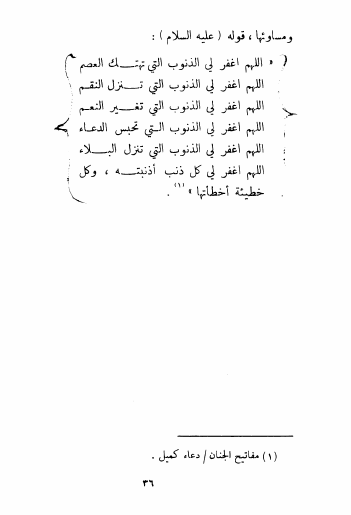 ومساوئها ، قوله ( عليه السلام ) :
« اللهم اغفر لي الذنوب التي تهتـــك العصم
اللهم اغفر لي الذنوب التي تـــنزل النقـم
اللهم اغفر لي الذنوب التي تغـــير النعـم
اللهم اغفر لي الذنوب الـتي تحبس الدعـاء
اللهم اغفر لي الذنوب التي تنزل البـــلاء
اللهم اغفر لي كل ذنب أذنبتـــه ، وكل
خطيئة أخطأتها » (١) .
(١) مفاتيح الجنان / دعاء كميل .
٣٦